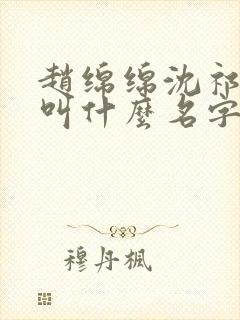 趙綿綿沈祁
叫什麼名字
穆丹楓